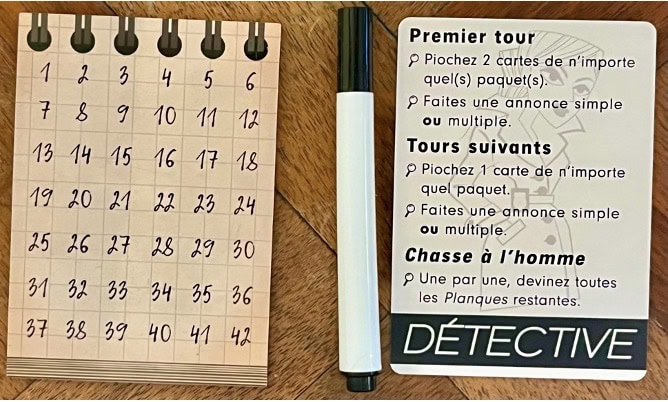 1 2 3 4 5 6
7 8 9 10 11 12
13 14 15 16 17 18
19 20 21 22 23 24
25 26 27 28 29 30
31 32 33 34 35 36
37 38 39 40 41 42
Premier tour
Piochez 2 cartes de n'importe
quel(s) paquet(s).
Faites une annonce simple
ou multiple.
Tours suivants
Piochez 1 carte de n'importe
quel paquet.
Faites une annonce simple
ou multiple.
Chasse à l'homme
Une par une, devinez toutes
les Planques restantes.
DÉTECTIVE